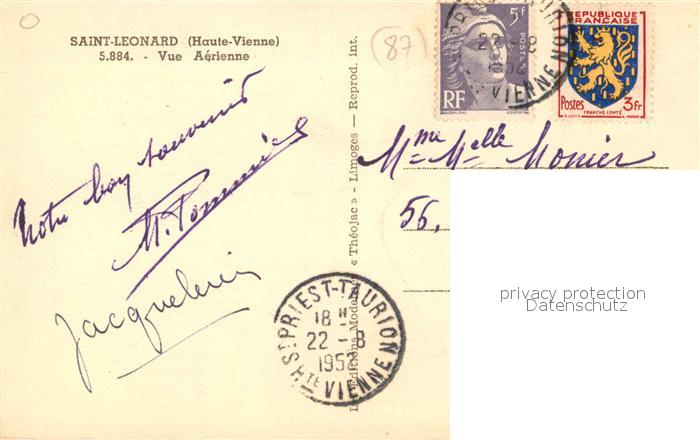 SAINT-LEONARD (Haute-Vienne)
5.884. - Vue Aérienne
Notre bon souvenir
M. Pommier
Jacqueline
Les Editions Modernes « Théojac » - Limoges — Reprod. int.
(87)
5f
POSTES
RF
22 - 8
VIENNE
REPUBLIQUE
FRANÇAISE
Postes 3Fr
FRANCHE-COMTÉ
Mme Melle Monier
56,
privacy protection
Datenschutz
ST PRIEST-TAURION
18 H
22 - 8
1952
HTE VIENNE